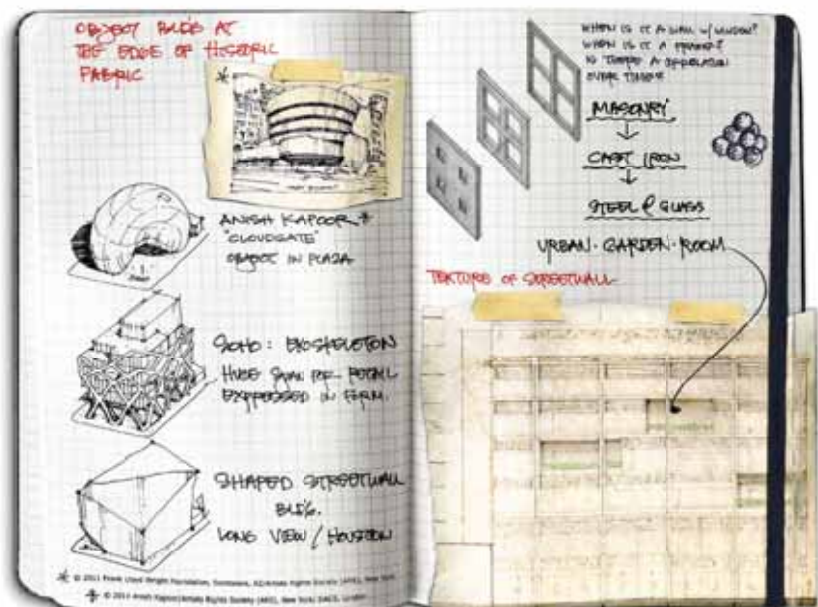 OBJECT BLD'G AT
THE EDGE OF HISTORIC
FABRIC
ANISH KAPOOR
"CLOUDGATE"
OBJECT IN PLAZA
SOHO: EXOSKELETON
HUGE SPAN FOR RETAIL
EXPRESSED IN FORM.
SHAPED STREETWALL
BLD'G.
LONG VIEW / HOUSTON
© 2011 Frank Lloyd Wright Foundation, Scottsdale, AZ/Artists Rights Society (ARS), New York
© 2011 Anish Kapoor/Artists Rights Society (ARS), New York/ DACS, London
WHEN IS IT A WALL W/ WINDOW?
WHEN IS IT A FRAME?
IS THERE A
OVER TIME?
MASONRY
CAST IRON
STEEL & GLASS
URBAN · GARDEN · ROOM
TEXTURE OF STREETWALL